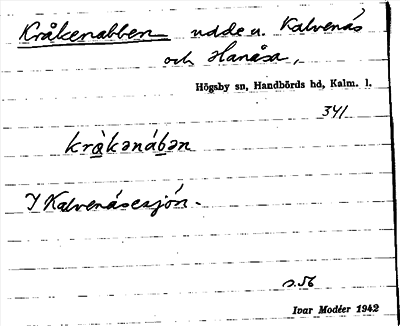 Kråkenabben udde u. Kalvenäs
och Hanåsa,
Högsby sn, Handbörds hd, Kalm. l.
341
krà̱kənáḇən
I Kalvenäsesjön.
s. 56
Ivar Modéer 1942